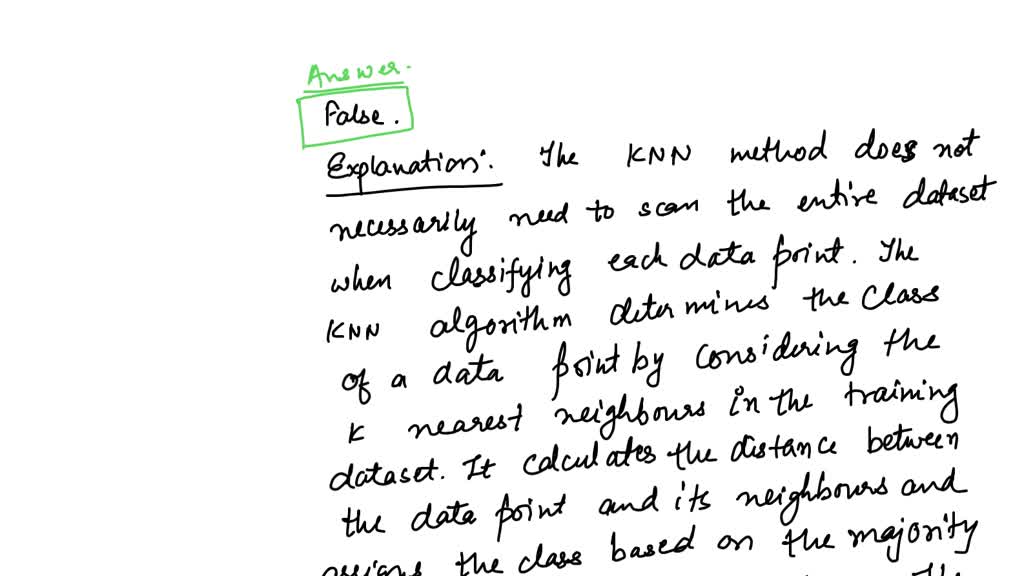 Answer.
False.
Explanation: The KNN method does not
necessarily need to scan the entire dataset
when classifying each data point. The
KNN algorithm determines the class
of a data point by considering the
K nearest neighbours in the training
dataset. It calculates the distance between
the data point and its neighbours and
assigns the class based on the majority
The